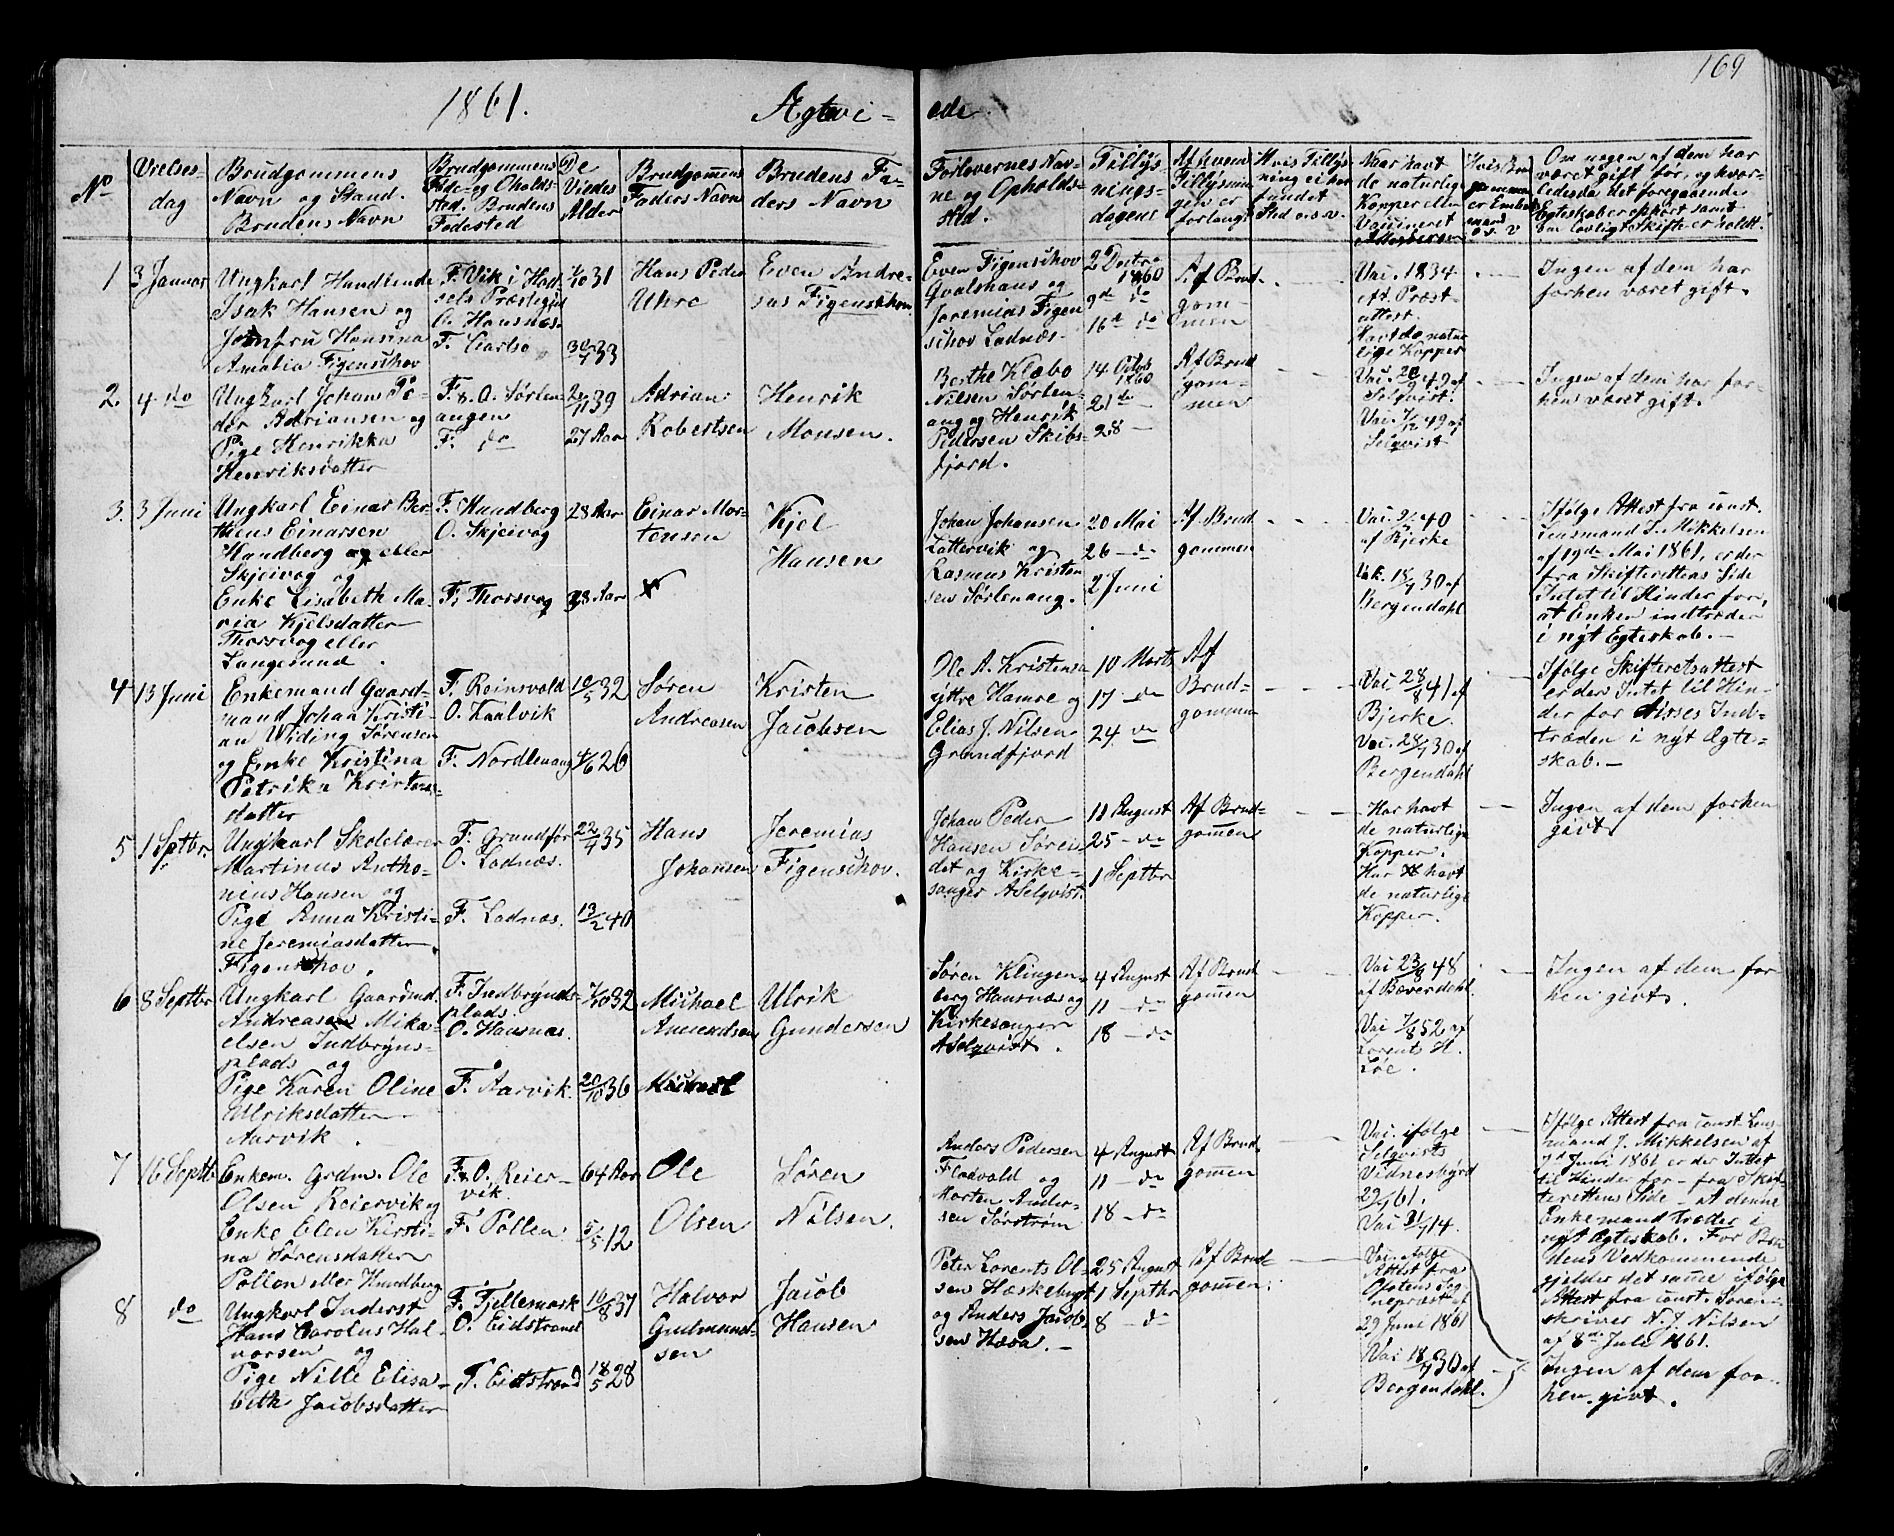 169
1861. Ægtevi- ede
No
Vielses-
dag
Brudgommens
Navn og Stand.
Brudens Navn
Brudgommens
Føde- og Opholds-
sted. Brudens
Fødested
De
Viedes
Alder
Brudgom̄ens
Faders Navn
Brudens Fa-
ders Navn
Forlovernes Nav-
ne og Opholds-
sted.
Tillys-
nings-
dagene
Af hvem
Tillysnin
gen er
forlangt
Hvis Tillys-
ning ei har
fundet
Sted o.s.v.
Naar havt
de naturlige
Kopper eller
Vaccineret
Om nogen af dem har
været gift før, og hvor-
ledes da det foregaaende
Egteskab er ophørt samt
om lovligt Skifte er holdt.
1
3 Januar
Ungkarl Handlende
Isak Hansen og
Jomfru Hansina
Amalia Figenschov
F. Vik i Had
sels Præstegjd
O. Hansnæs.
F. Carlsø
7/10 31
30/4 33
Hans Peder
Uhre
Even Andre-
sas Figenschov
Even Figenschov
Gvalshaus og
Jeremias Figen
schov Ladnæs.
2 Decbr
1860
9de do
16de do
Af Brud-
gom-
men
Vac. 1834
eft. Præst-
attest.
Havt de natur
lige Kopper
Ingen af dem har
forhen været gift.
2.
4 do
Ungkarl Johan Pe-
der Adriansen og
Pige Henrikka
Henriksdatter
F. & O. Sørlen-
angen
F. do
2/11 39
27 Aar
Adrian
Robertsen
Henrik
Monsen.
Berthe Klæbo
Nilsen Sørlen-
ang og Henrik
Pedersen Skibs-
fjord.
14 Octob
1860
21 do -
28 -
Af Brud
gom-
men
Vac. 20/9 49 af
Selqvist.
Vac. 7/12 49 af
Selqvist
Ingen af dem har for-
hen været gift.
3.
3 Juni
Ungkarl Einar Ber-
thens Einarsen
Hundberg og eller
Skjeivog og
Enke Lisabeth Ma-
ria Kjelsdatter
Thorsvog eller
Langesund.
F. Hundberg
O. Skjeivog
F. Thorsvog
28 Aar
38 Aar
Einar Mor-
tensen
Kjel
Hansen
Johan Johansen
Lattervik og
Rasmus Kristen
sen Sørlenang.
20 Mai
26 - do
2 Juni
Af Brud
gommen
Vac. 2/7 40
af Bjerke
Vak. 18/7 30 af
Bergendahl
Ifølge Attest fra const.
Lensmand L. Mikkelsen
af 19de Mai 1861, er der
fra Skifterettens Side
Intet til Hinder for,
at Enken indtræder
i nyt Egteskab. -
4
13 Juni
Enkemand Gaard-
mand Johan Kristi-
an Widing Sørensen
og Enke Kristina
Petrika Kristens-
datter
F. Reinsvold
O. Kaalvik
F. Nordlenang
10/5 32
4/6 26
Søren
Andreasen
Kristen
Jacobsen
Ole A. Kristensen
yttre Hamre og
Elias J. Nilsen
Grundfjord
10 Marts
17 - do
24. do
Af
Brud-
gommen
Vac. 28/8 41 af
Bjerke.
Vac. 28/7 30 af
Bergendahl
Ifølge Skifteretsattest
er der Intet til Hin-
der for disses Ind-
træden i nyt Ægte-
skab. -
5
1 Septbr.
Ungkarl Skolelærer
Martinus Antho-
nius Hansen og
Pige Anna Kristi-
ne Jeremiasdatter
Figenschov.
F. Grundfør
O. Ladnæs.
F. Ladnæs.
22/4 35
13/2 40
Hans
Johansen
Jeremias
Figenschov.
Johan Peder
Hansen Sørei-
det og Kirke-
sanger A Selqvist.
18 August
25 - do
1 Septbr
Af Brud-
gom̄en
Har havt
de naturlige
Kopper.
Har havt
de naturlige
Kopper.
Ingen af dem forhen
givt
6
8 Septbr
Ungkarl Gaardmd.
Andreas Mika-
elsen Indbryns-
plads og
Pige Karen Oline
Ulriksdatter
Aarvik.
F. Indbrynds-
plads.
O. Hansnæs.
F. Aarvik.
7/10 32
20/10 36
Michael
Amundsen
Ulrik
Gundersen
Søren Klingen-
berg Hansnæs og
Kirkesanger
A Selqvist.
4 August
11 - do
18 - do
Af Brud
gom̄en
Vac 23/8 48
af Bæverdahl.
Vac 7/8 52 af
Lorents H.
Løe.
Ingen af dem for
hen givt.
7
16 Septb.
Enkem. Grdm. Ole
Olsen Reiervik og
Enke Elen Kirsti-
na Sørensdatter
Pollen eller Hundberg
F. & O. Reier-
vik.
F. Pollen.
64 Aar
5/5 12
Ole
Olsen
Søren
Nilsen.
Anders Pedersen
Fladvold og
Morten Ander-
sen Sørstrøm
4 August
11 - do
18 - do
Af Brud-
gom̄en
Vac. ifølge
Selqvists
Vidnesbyrd
29/7 61.
Vac 21/7 14.
Ifølge Attest fra const. Lens-
mand J. Mikkelsen af
7de Juni 1861 er der Intet
til Hinder for - fra Skif-
terettens Side - at denne
Enkemand træder i
nyt Ægteskab. For Bru
dens Vedkommende
gjelder det sam̄e ifølge
Attest fra const. Soren-
skriver N. J. Nilsen
af 8de Juli 1861.
8
do
Ungkarl Inderst
Hans Carolus Hal-
vorsen og
Pige Nille Elisa-
beth Jacobsdatter
F. Fjellemark
O. Eidstrand
F. Eidstrand
10/8 37
18/5 28
Halvor
Gudmund-
sen
Jacob
Hansen
Peter Lorents Ol-
sen Hæskebugt
og Anders Jacob-
sen Hæoa. -
25 August
1 Septbr
8 - do
Af Brud-
gom̄en.
Vac. ifølge
Attest fra
Ofotens Sog-
nepræst af
29 Juni 1861
Vac 18/7 30 af
Bergendahl.
Ingen af dem for-
hen givt.